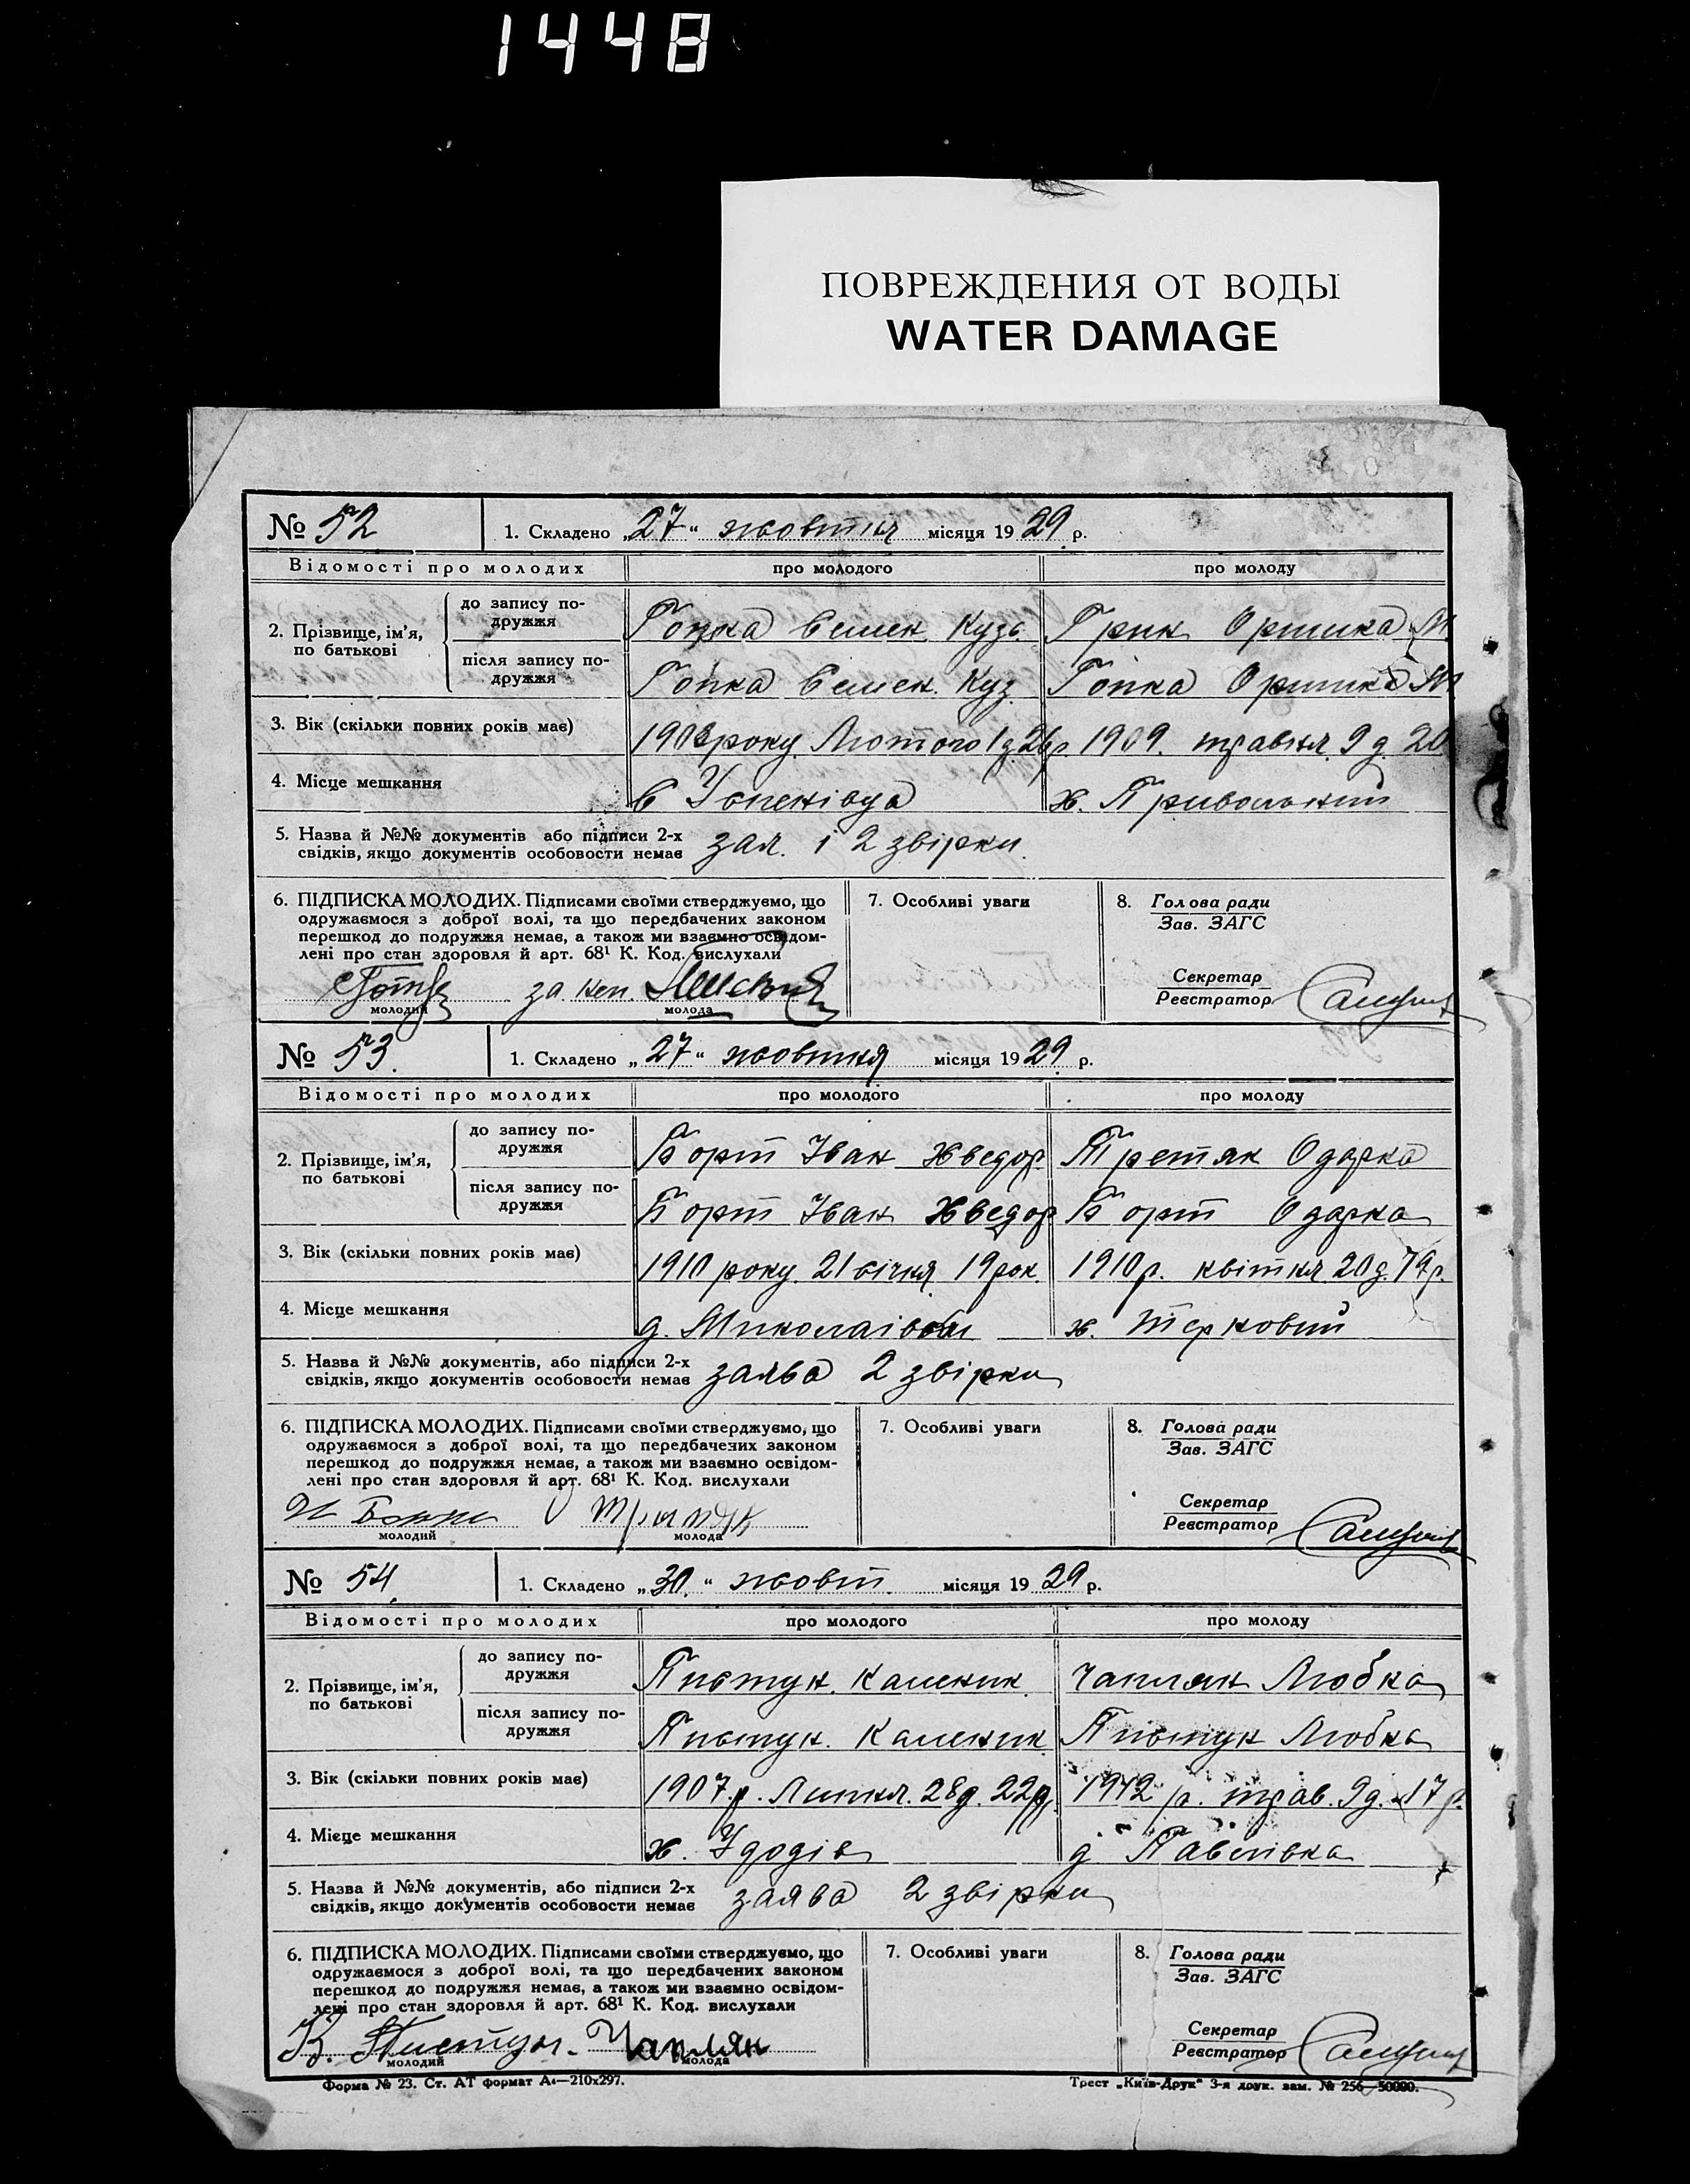 1448
ПОВРЕЖДЕНИЯ ОТ ВОДЫ
WATER DAMAGE
№ 52 1. Складено „27“ жовтня місяця 1929 р.
Відомості про молодих про молодого про молоду
2. Прізвище, ім'я, по батькові
до запису по-дружжя Гопка Семен Кузь. Грик Оришка М
після запису по-дружжя Гопка Семен. Куз. Гопка Оришка М
3. Вік (скільки повних років має) року Лютого 1 д. 1909. травня. 9 д. 20
4. Місце мешкання с Успенівца х. Привольний
5. Назва й №№ документів або підписи 2-х
свідків, якщо документів особовости немає зая. і 2 звірки.
6. ПІДПИСКА МОЛОДИХ. Підписами своїми стверджуємо, що
одружаємося з доброї волі, та що передбачених законом
перешкод до подружжя немає, а також ми взаємно освідом-
лені про стан здоровля й арт. 68¹ К. Код. вислухали
за неп.
молодий молода
7. Особливі уваги
8. Голова ради
Зав. ЗАГС
Секретар
Реєстратор
№ 53. 1. Складено „27“ жовтня місяця 1929 р.
Відомості про молодих про молодого про молоду
2. Прізвище, ім'я, по батькові
до запису по-дружжя Борт Іван Хведор Третяк Одарка
після запису по-дружжя Борт Іван Хведор Борт Одарка
3. Вік (скільки повних років має) 1910 року 21 січня 19 рок. 1910 р. квітня 20 д. 19 р.
4. Місце мешкання д. Миколаівка х. Терновий
5. Назва й №№ документів, або підписи 2-х
свідків, якщо документів особовости немає заява 2 звірки
6. ПІДПИСКА МОЛОДИХ. Підписами своїми стверджуємо, що
одружаємося з доброї волі, та що передбачених законом
перешкод до подружжя немає, а також ми взаємно освідом-
лені про стан здоровля й арт. 68¹ К. Код. вислухали
молодий молода
7. Особливі уваги
8. Голова ради
Зав. ЗАГС
Секретар
Реєстратор
№ 54. 1. Складено „30.“ жовт. місяця 1929 р.
Відомості про молодих про молодого про молоду
2. Прізвище, ім'я, по батькові
до запису по-дружжя Пистун. Каленик. Чаплян Любка
після запису по-дружжя Пистун. Каленик Пистун Любка
3. Вік (скільки повних років має) 1907 р. Липня. 28 д. 22 р. 1912 р. трав. 9 д. 17 р.
4. Місце мешкання х. Удодів д Павлівка
5. Назва й №№ документів, або підписи 2-х
свідків, якщо документів особовости немає заява 2 звірки
6. ПІДПИСКА МОЛОДИХ. Підписами своїми стверджуємо, що
одружаємося з доброї волі, та що передбачених законом
перешкод до подружжя немає, а також ми взаємно освідом-
лені про стан здоровля й арт. 68¹ К. Код. вислухали
К. Пистун. Чаплян
молодий молода
7. Особливі уваги
8. Голова ради
Зав. ЗАГС
Секретар
Реєстратор
Форма № 23. Ст. АТ формат А4—210х297. Трест „Київ-Друк“ 3-я друк. зам. № 256—50000.